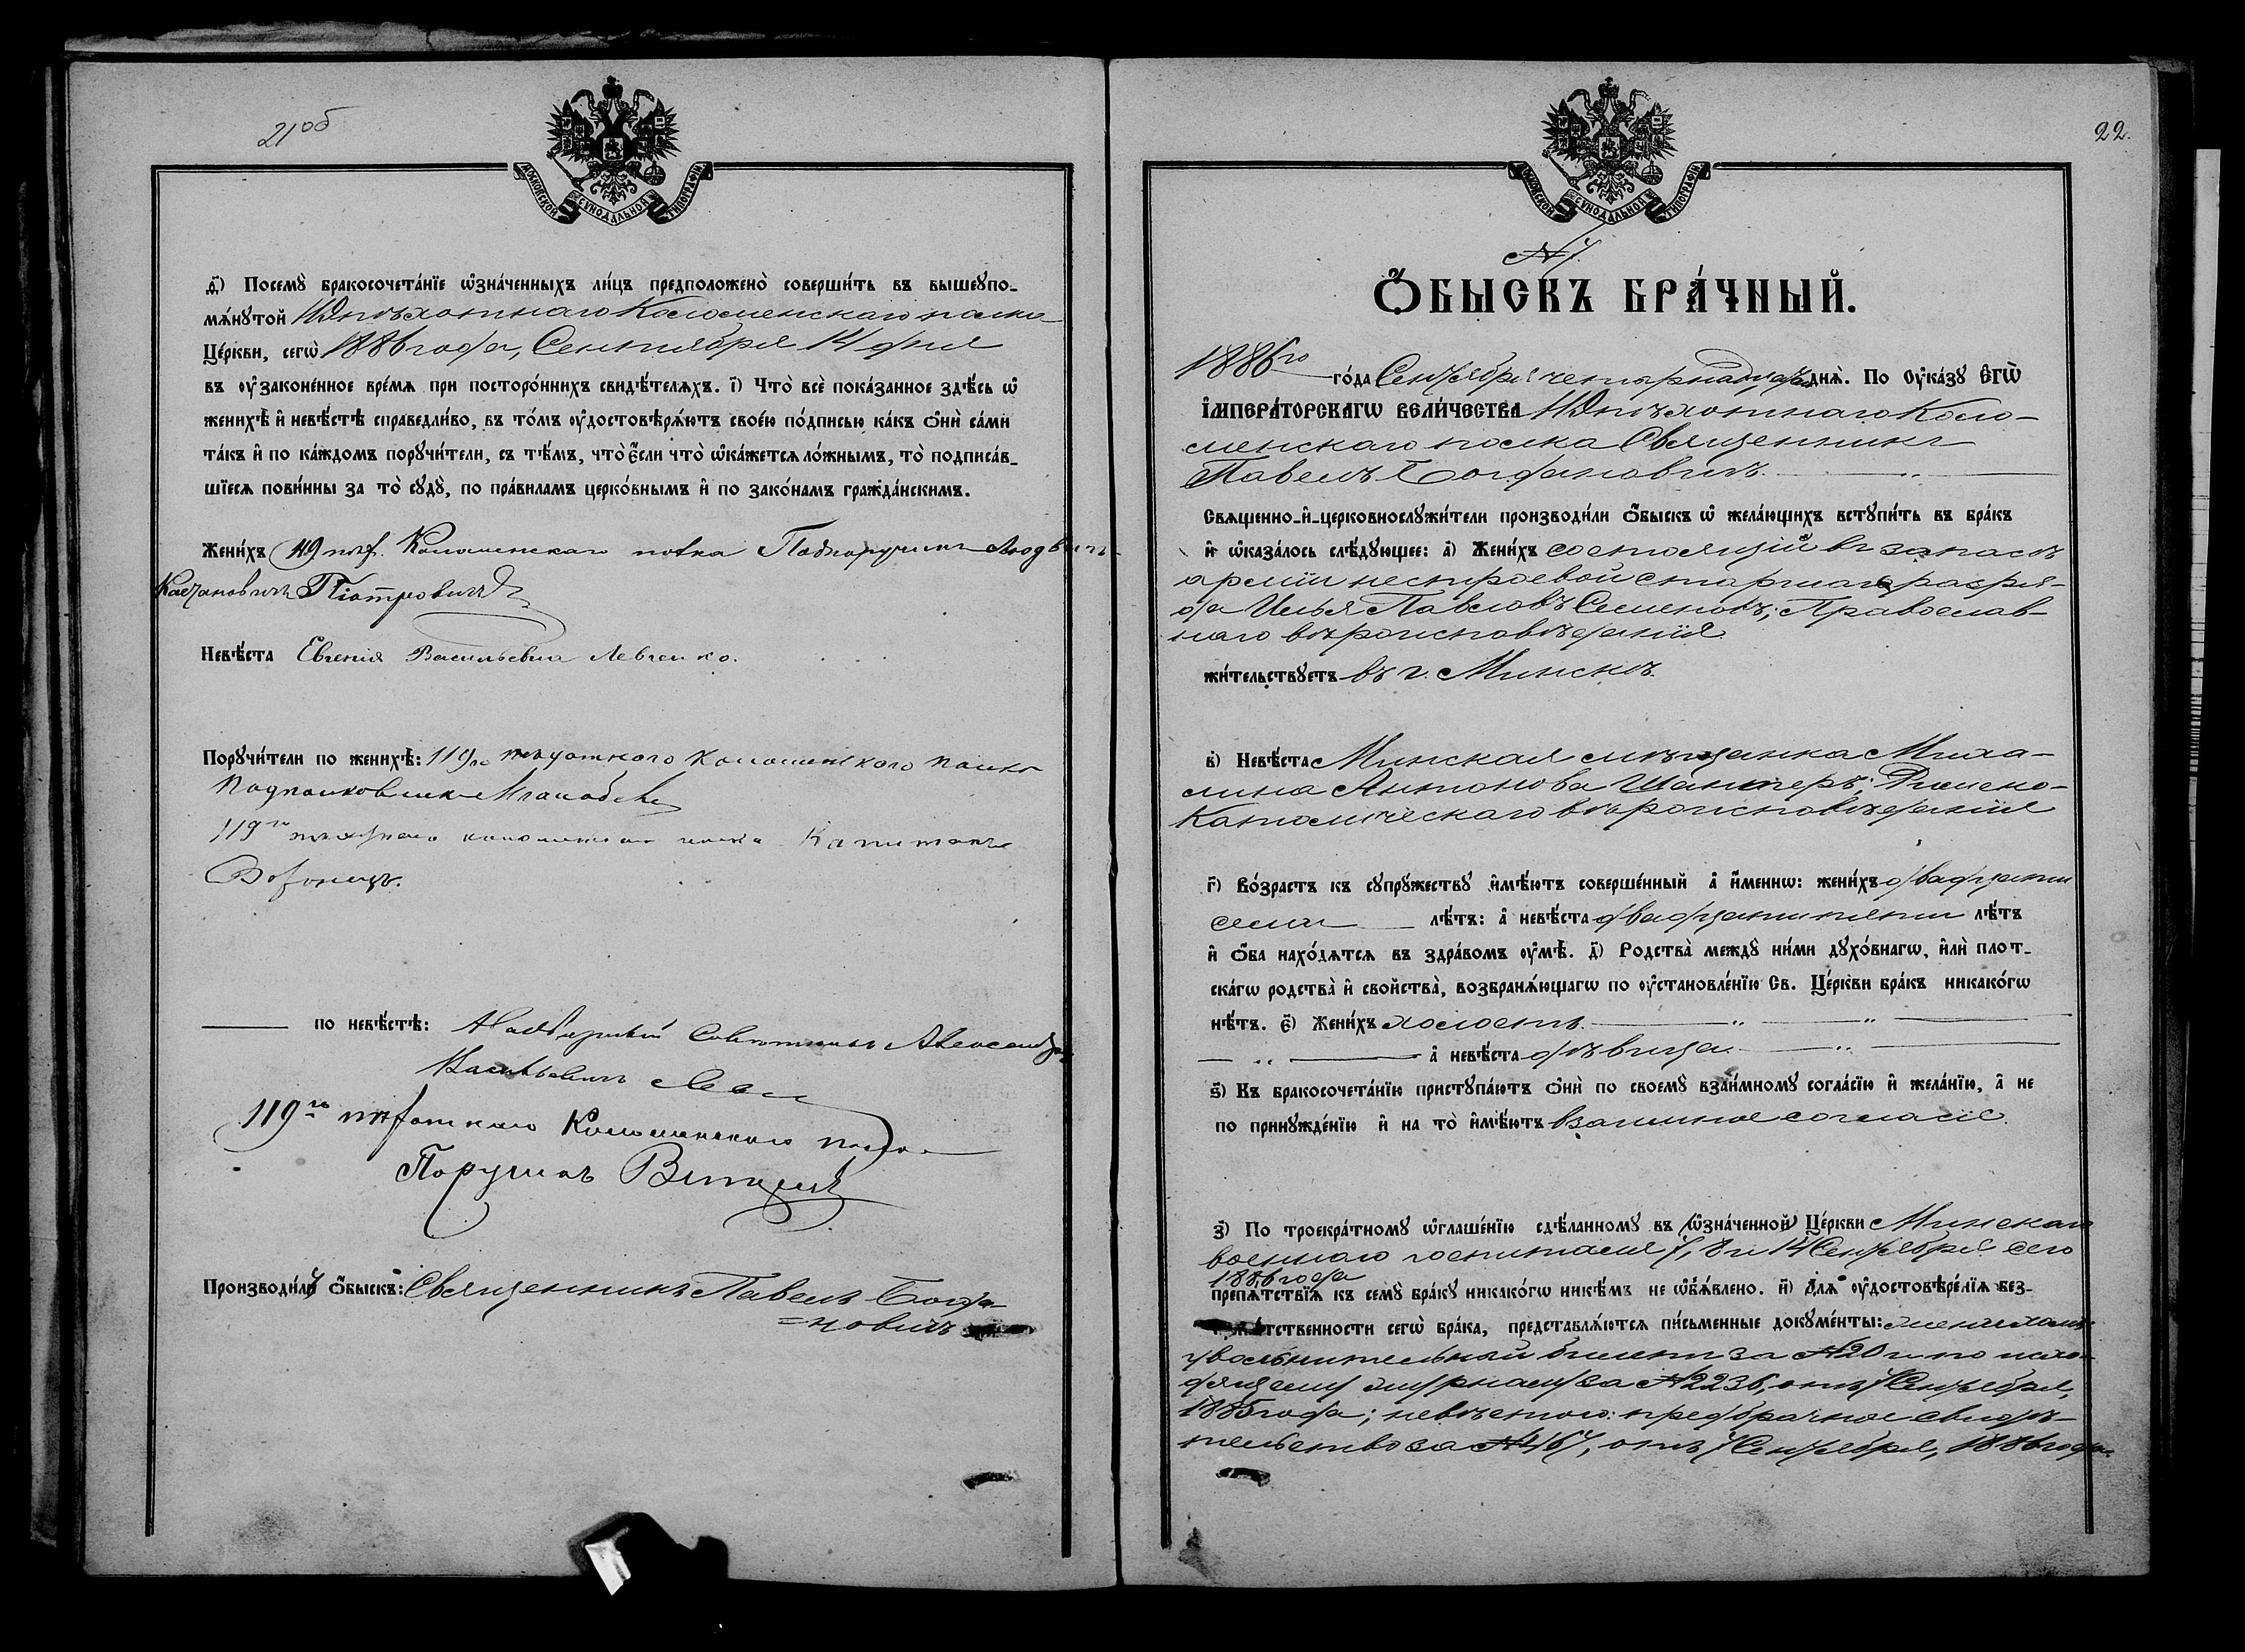 21об
МОСКОВСКОЙ СУНОДАЛЬНОЙ ТИПОГРАФІИ
д҃) Посемꙋ̀ бракосочета́нїе ѡ҆зна́ченныхъ ли́цъ предположено̀ соверши́ть въ вышеꙋпо-
мѧ́нꙋтой 119 пѣхотнаго Коломенскаго полка
Це́ркви, сегѡ̀ 1886 года, Сентября 14 дня
въ ᲂу҆законе́нное вре́мѧ при посторо́ннихъ свидѣ́телѧхъ. і҃) Что̀ всѐ пока́занное здѣ́сь ѡ҆
женихѣ̀ и҆ невѣ́стѣ справедли́во, въ то́мъ ᲂу҆достовѣрѧ́ютъ свое́ю по́дписью ка́къ ѻ҆нѝ са́ми
та́къ и҆ по ка́ждомъ порꙋчи́тели, съ тѣ́мъ, что̀ є҆́сли что̀ ѡ҆ка́жетсѧ ло́жнымъ, то̀ подписа́в-
шїесѧ пови́нны за то̀ сꙋдꙋ̀, по пра́виламъ церко́внымъ и҆ по зако́намъ гражда́нскимъ.
Жени́хъ 119 пѣх. Коломенскаго полка Подпоручикъ Людвигъ
Каэтановичъ Піотровичъ
Невѣ́ста Евгенія Васильевна Левченко.
Порꙋчи́тели по женихѣ̀: 119го пѣхотного Коломенского полка
Подполковникъ
119го пѣхотнаго коломенскаго полка Капитанъ
по невѣ́стѣ: Надворный Совѣтникъ Александръ
Васильевичъ
119го пѣхотнаго Коломенскаго полка
Поручикъ
Производи́лъ ѻ҆́быскъ: Священникъ Павелъ Богда-
=новичъ
22.
МОСКОВСКОЙ СУНОДАЛЬНОЙ ТИПОГРАФІИ
№ 7.
Ѻ҆́БЫСКЪ БРА́ЧНЫЙ.
1886го го́да Сентября четырнадцатаго днѧ̀. По ᲂу҆ка́зꙋ Є҆ГѠ̀
І҆МПЕРА́ТОРСКАГѠ ВЕЛИ́ЧЕСТВА 119 пѣхотнаго Коло-
менскаго полка Священникъ
Павелъ Богдановичъ.
Свѧще́нно-и҆-церковнослꙋжи́тели производи́ли ѻ҆́быскъ ѡ҆ жела́ющихъ встꙋпи́ть въ бра́къ
и҆ ѡ҆каза́лось слѣ́дꙋющее: а҃) Жени́хъ состоящій въ запасѣ
арміи нестроевой старшаго разря-
да Илья Павловъ Семеновъ; Православ-
наго вѣроисповѣданія
жи́тельствꙋетъ въ г. Минскѣ.
в҃) Невѣ́ста Минская мѣщанка Миха-
лина Антонова; Римско-
Католическаго вѣроисповѣданія
г҃) Во́зрастъ къ сꙋпрꙋ́жествꙋ и҆мѣ́ютъ соверше́нный а҆ и҆́менно: жени́хъ двадцати
семи лѣ́тъ: а҆ невѣ́ста двадцати пяти лѣ́тъ
и҆ ѻ҆́ба нахо́дѧтсѧ въ здра́вомъ ᲂу҆мѣ̀. д҃) Родства̀ междꙋ̀ ни́ми дꙋхо́внагѡ, и҆лѝ плот-
ска́гѡ родства̀ и҆ свойства̀, возбранѧ́ющагѡ по ᲂу҆становле́нїю Св. Це́ркви бра́къ никако́гѡ
нѣ́тъ. є҃) Жени́хъ холостъ.
а҆ невѣ́ста дѣвица.
ѕ҃) Къ бракосочета́нїю пристꙋпа́ютъ ѻ҆нѝ по своемꙋ̀ взаи́мномꙋ согла́сїю и҆ жела́нїю, а҆ не
по принꙋжде́нїю и҆ на то̀ и҆мѣ́ютъ взаимное согласіе.
з҃) По троекра́тномꙋ ѡ҆глаше́нїю сдѣ́ланномꙋ въ ѡ҆зна́ченной Це́ркви Минскаго
военнаго госпиталя 7, 8 и 14 Сентября сего
1886 года
препѧ́тствїѧ къ семꙋ̀ бра́кꙋ никако́гѡ никѣ́мъ не ѡ҆б̾ѧ́влено. и҃) Длѧ ᲂу҆достовѣре́нїѧ без-
препѧ́тственности сегѡ̀ бра́ка, представлѧ́ютсѧ пи́сьменные докꙋме́нты: женихомъ:
увольнительный билетъ за № 20 и по исхо-
дящему журналу за № 2236, отъ 7 Сентября,
1885 года; невѣстою: предбрачное свидѣ-
тельство за № 467, отъ 7 Сентября, 1886 года.